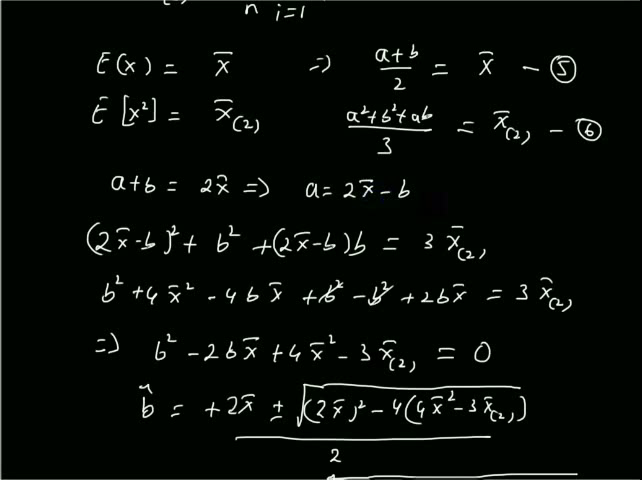 n i=1
E(x) = x̄ => (a+b)/2 = x̄ - ⑤
E[x²] = x̄₍₂₎ (a²+b²+ab)/3 = x̄₍₂₎ - ⑥
a+b = 2x̄ => a = 2x̄-b
(2x̄-b)² + b² + (2x̄-b)b = 3 x̄₍₂₎
b² + 4x̄² - 4bx̄ + b² - b² + 2bx̄ = 3 x̄₍₂₎
=> b² - 2bx̄ + 4x̄² - 3x̄₍₂₎ = 0
b̂ = +2x̄ ± √((2x̄)² - 4(4x̄² - 3x̄₍₂₎)) / 2